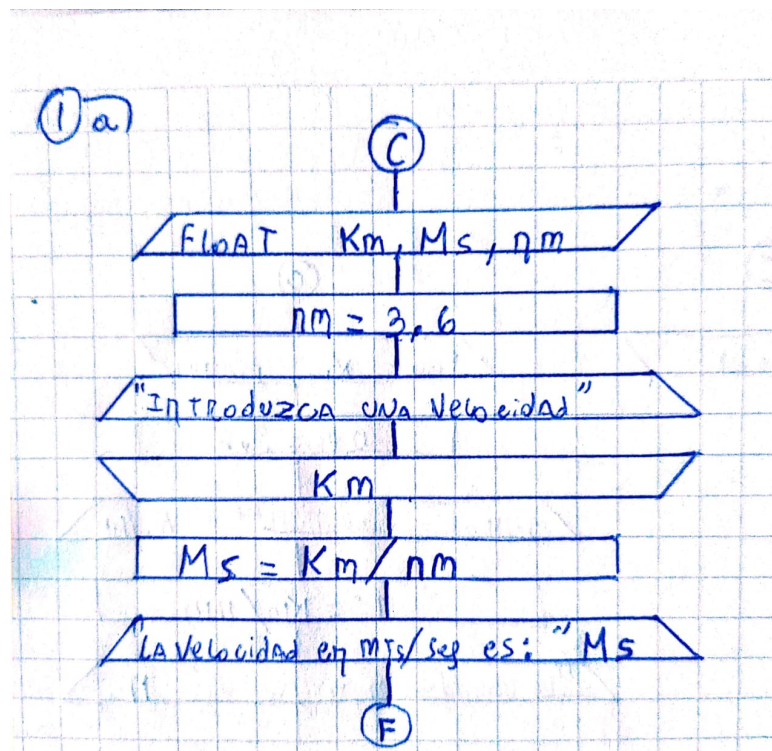 1 a)
C
FLOAT Km, Ms, nm
nm = 3,6
"INTRODUZCA UNA Velocidad"
Km
Ms = Km / nm
"LA Velocidad en mTs/seg es: " Ms
F